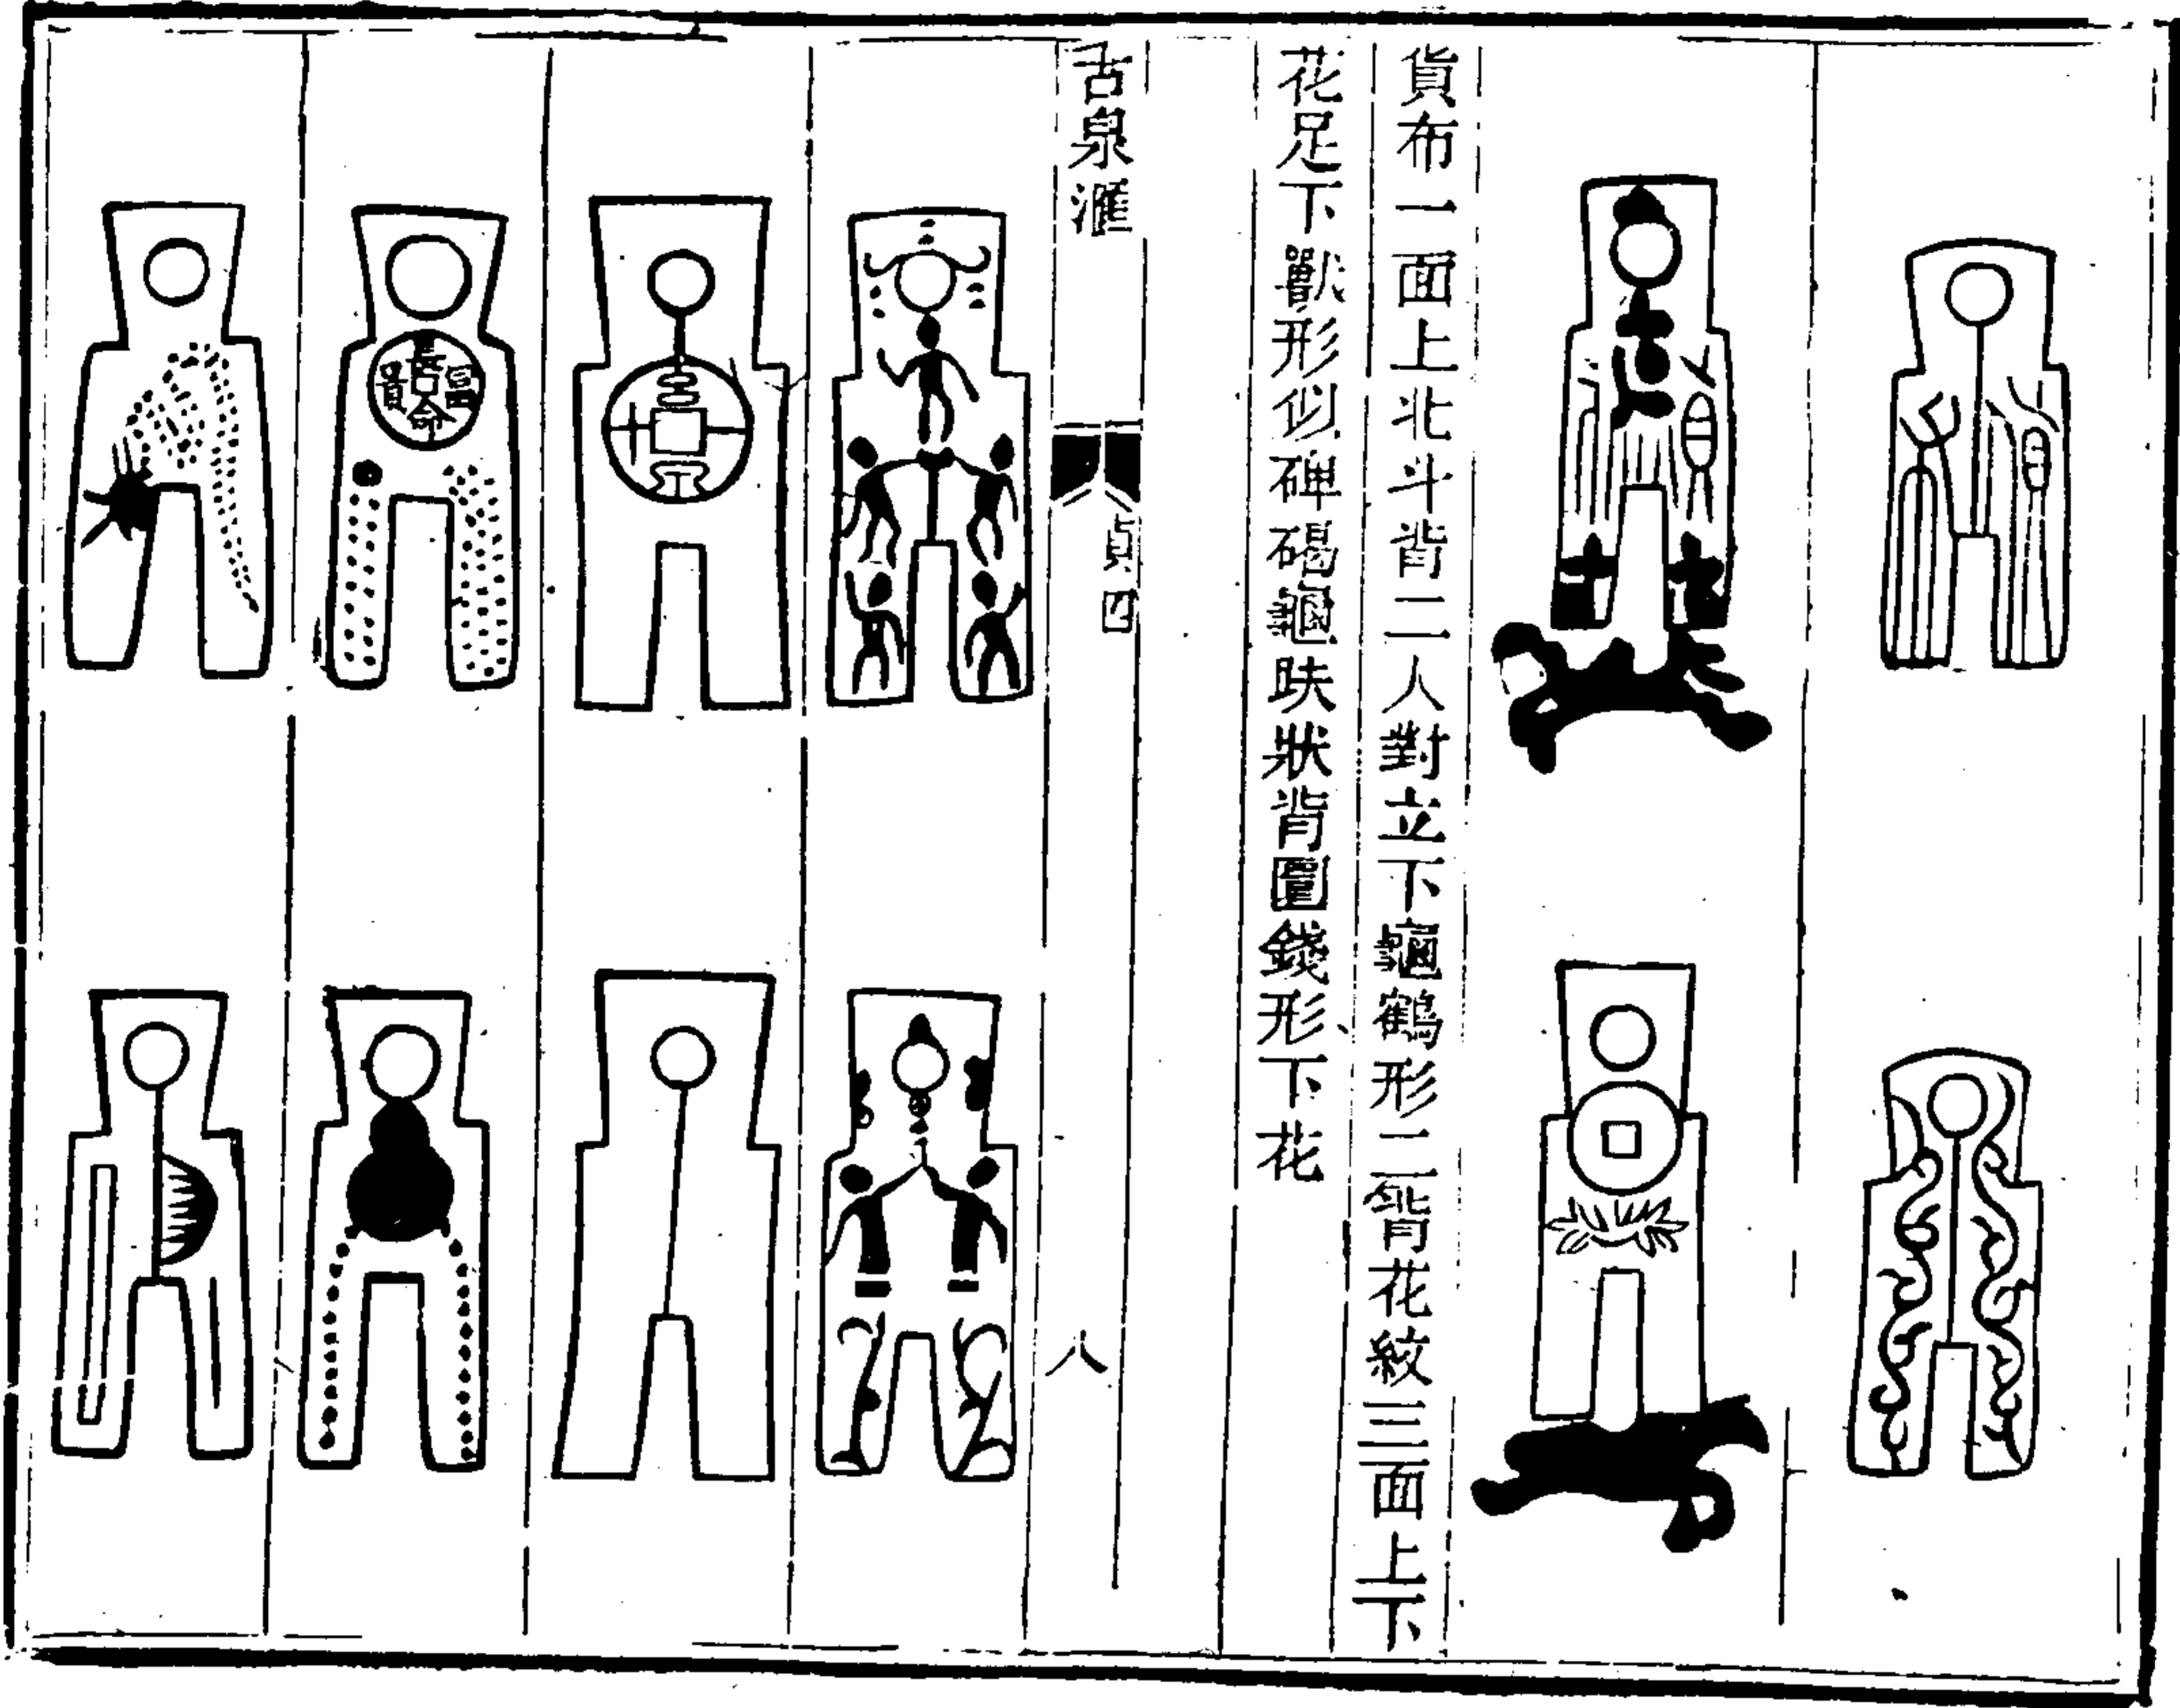 貨布一面上北斗背二人對立下龜鶴形二背花紋三面上下
花足下獸形似碑碣龜趺狀背圓錢形下花
古泉滙
貞四
八
長命富貴